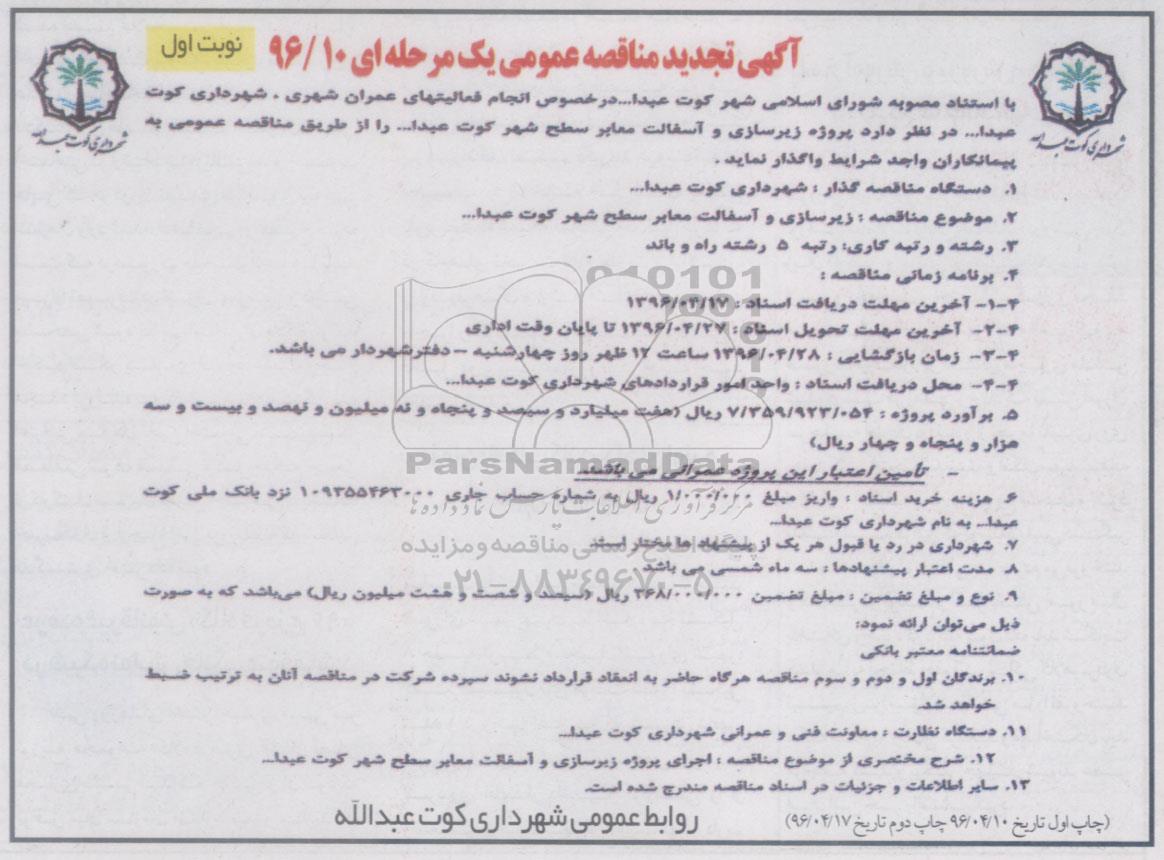 آگهی تجدید مناقصه عمومی یک مرحله ای ۹۶/۱۰
نوبت اول
شهرداری کوت عبداله
شهرداری کوت عبداله
با استناد مصوبه شورای اسلامی شهر کوت عبدا...درخصوص انجام فعالیتهای عمران شهری ، شهرداری کوت
عبدا... در نظر دارد پروژه زیرسازی و آسفالت معابر سطح شهر کوت عبدا... را از طریق مناقصه عمومی به
پیمانکاران واجد شرایط واگذار نماید .
۱. دستگاه مناقصه گذار : شهرداری کوت عبدا...
۲. موضوع مناقصه : زیرسازی و آسفالت معابر سطح شهر کوت عبدا...
۳. رشته و رتبه کاری: رتبه ۵ رشته راه و باند
۴. برنامه زمانی مناقصه :
۴-۱- آخرین مهلت دریافت اسناد : ۱۳۹۶/۰۴/۱۷
۴-۲- آخرین مهلت تحویل اسناد : ۱۳۹۶/۰۴/۲۷ تا پایان وقت اداری
۴-۳- زمان بازگشایی : ۱۳۹۶/۰۴/۲۸ ساعت ۱۲ ظهر روز چهارشنبه –دفترشهردار می باشد.
۴-۴- محل دریافت اسناد : واحد امور قراردادهای شهرداری کوت عبدا...
۵. برآورد پروژه : ۷/۳۵۹/۹۲۳/۰۵۴ ریال (هفت میلیارد و سیصد و پنجاه و نه میلیون و نهصد و بیست و سه
هزار و پنجاه و چهار ریال)
- تأمین اعتبار این پروژه عمرانی می باشد.
۶. هزینه خرید اسناد : واریز مبلغ ۱/۰۰۰/۰۰۰ ریال به شماره حساب جاری ۱۰۹۳۵۵۴۶۳۰۰۰ نزد بانک ملی کوت
عبدا... به نام شهرداری کوت عبدا...
۷. شهرداری در رد یا قبول هر یک از پیشنهادها مختار است.
۸. مدت اعتبار پیشنهادها : سه ماه شمسی می باشد
۹. نوع و مبلغ تضمین : مبلغ تضمین ۳۶۸/۰۰۰/۰۰۰ ریال (سیصد و شصت و هشت میلیون ریال) می‌باشد که به صورت
ذیل می‌توان ارائه نمود:
ضمانتنامه معتبر بانکی
۱۰. برندگان اول و دوم و سوم مناقصه هرگاه حاضر به انعقاد قرارداد نشوند سپرده شرکت در مناقصه آنان به ترتیب ضبط
خواهد شد.
۱۱. دستگاه نظارت : معاونت فنی و عمرانی شهرداری کوت عبدا...
۱۲. شرح مختصری از موضوع مناقصه : اجرای پروژه زیرسازی و آسفالت معابر سطح شهر کوت عبدا...
۱۳. سایر اطلاعات و جزئیات در اسناد مناقصه مندرج شده است.
(چاپ اول تاریخ ۹۶/۰۴/۱۰ چاپ دوم تاریخ ۹۶/۰۴/۱۷)
روابط عمومی شهرداری کوت عبدالله
ParsNamadData
مرکز فرآوری اطلاعات پارس نماد داده ها
پایگاه اطلاع رسانی مناقصه و مزایده
۰۲۱-۸۸۳۴۹۶۷۰-۵